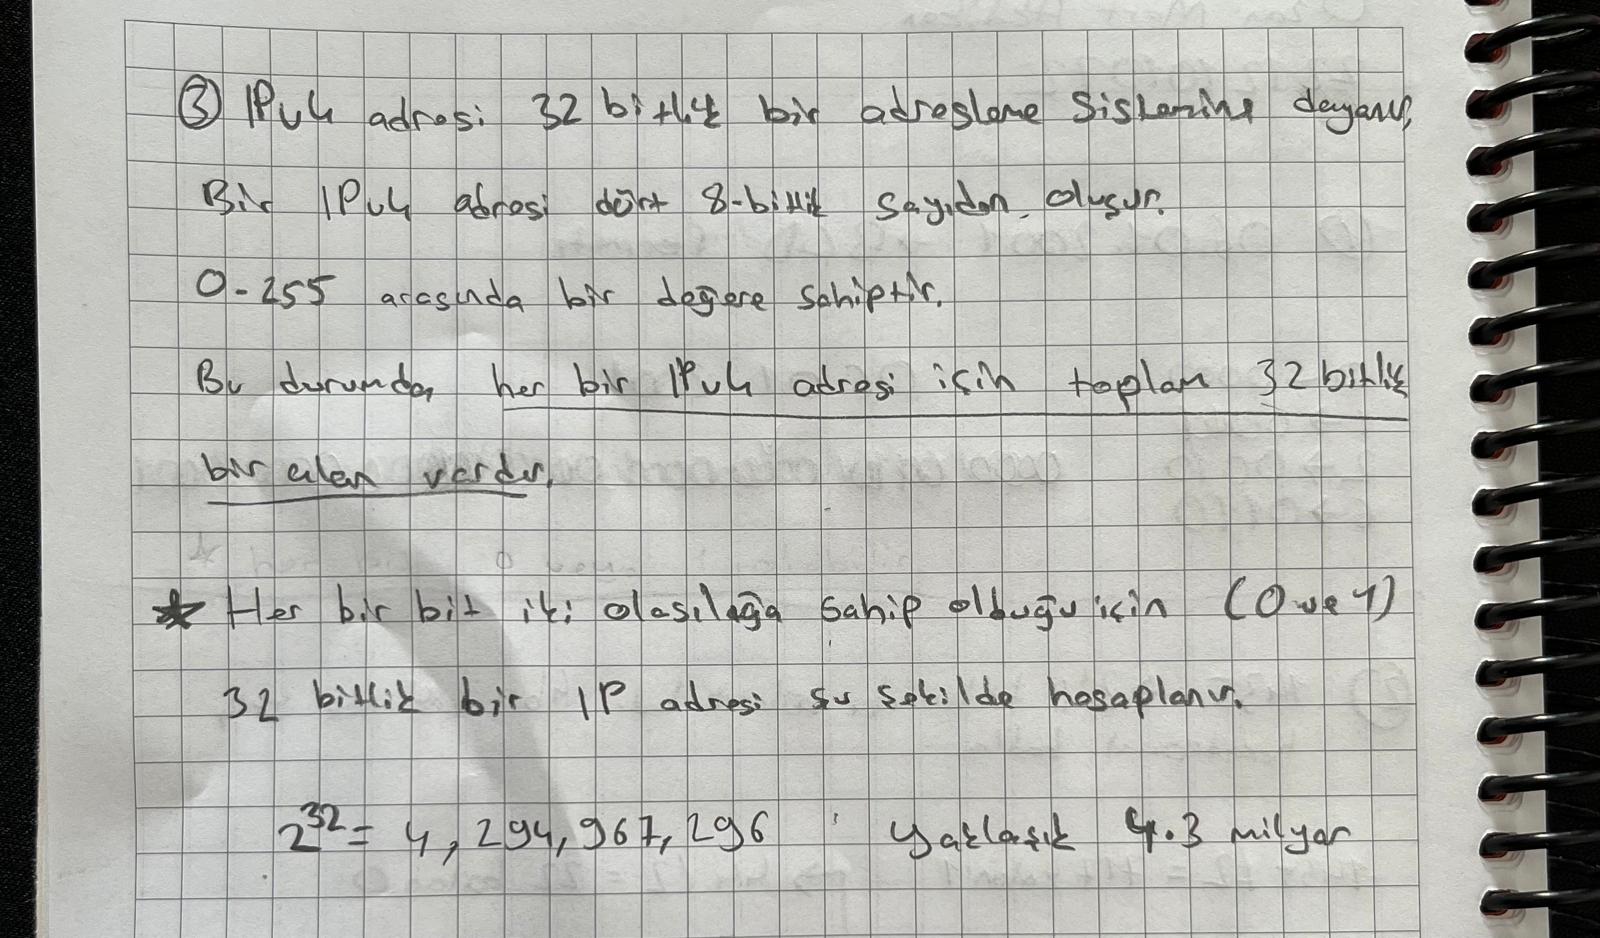 ③ IPv4 adresi 32 bitlik bir adresleme sistemine dayanır,
Bir IPv4 adresi dört 8-bitlik sayıdan oluşur.
0-255 arasında bir değere sahiptir.
Bu durumda, her bir IPv4 adresi için toplam 32 bitlik
bir alan vardır.
★ Her bir bit iki olasılığa sahip olduğu için (0 ve 1)
32 bitlik bir IP adresi şu şekilde hesaplanır.
2³² = 4,294,967,296 yaklaşık 4.3 milyar